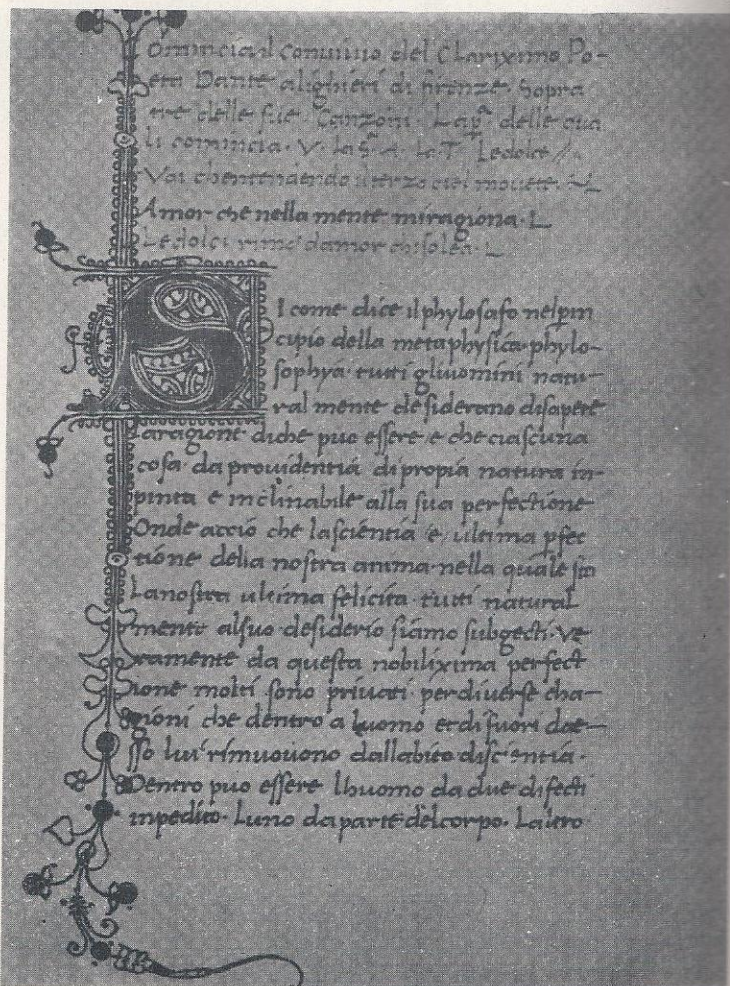 Omincia il conuiuio del Clariximo Po-
eta Dante alighieri di firenze. Sopra
tre delle sue Canzoni. La pª delle qua
li comincia. V. la sª. A. la T. Ledolce
Voi chentendendo il terzo ciel mouete.
Amor che nella mente miragiona. L
Le dolci rime damor chi solea. L
S I come dice il phylosafo nel prin
cipio della metaphysica phylo-
sophya. tutti gliuomini natu-
ral mente desiderano disapere
Laragione diche puo essere e che ciascuna
cosa da prouidentia dipropia natura in-
pinta e inclinabile alla sua perfectione
Onde acciò che lascientia e ultima pfec
tione della nostra anima nella quale sta
Lanostra ultima felicita tutti natural
mente alsuo desiderio siamo subgecti. Ve
ramente da questa nobilixima perfect
ione molti sono priuati perdiuerse cha-
gioni che dentro a luomo et di fuori dae-
sso lui rimuouono dallabito discientia.
Dentro puo essere lhuomo da due difecti
inpedito. Luno da parte delcorpo. Laltro